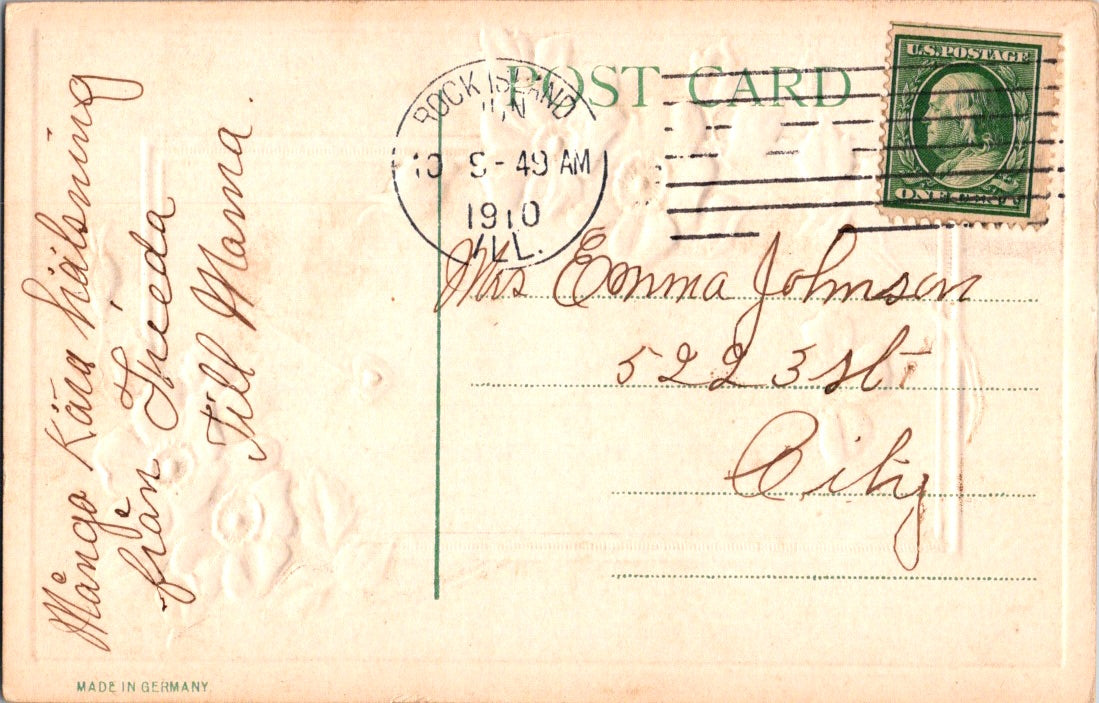 POST CARD
U.S. POSTAGE
ONE CENT
ROCK ISLAND
JUN
10 9-49 AM
1910
ILL.
Mrs Emma Johnson
522 3 St
City
Många Kära hälsning
från Frieda
Till Mama.
MADE IN GERMANY